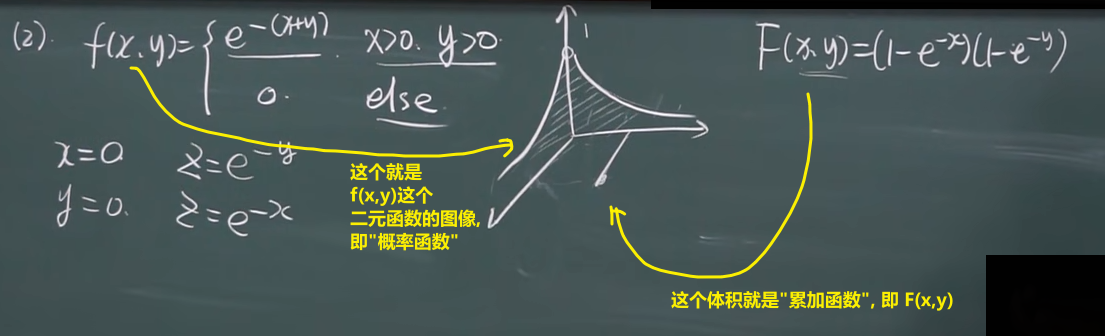 (2). f(x,y)={ e^-(x+y) x>0. y>0.
0. else.
1
F(x,y)=(1-e^-x)(1-e^-y)
x=0 z=e^-y
y=0. z=e^-x
这个就是
f(x,y)这个
二元函数的图像,
即"概率函数"
这个体积就是"累加函数", 即 F(x,y)